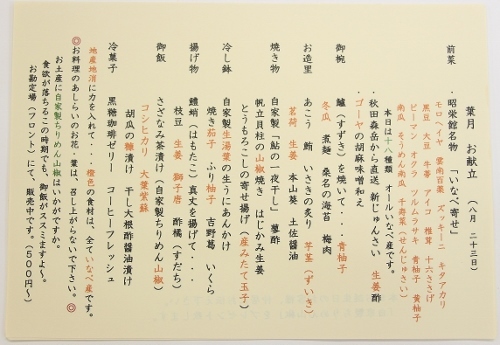 葉月 お献立 （八月 二十三日）
前菜 ・昭栄館名物 「いなべ寄せ」
モロヘイヤ 雲南百薬 ズッキーニ キタアカリ
黒豆 大豆 牛蒡 アイコ 椎茸 十六ささげ
ピーマン オクラ ツルムラサキ 青柚子 黄柚子
南瓜 そうめん南瓜 千寿菜（せんじゅさい）
本日は十八種類 オールいなべ産です。
・秋田森岳から直送 新じゅんさい 生姜酢
・ゴーヤの胡麻味噌和え
御椀 鱸（すずき）を焼いて・・・・青柚子
冬瓜 煮麺 桑名の海苔 梅肉
お造里 あこう 鮪 いさきの炙り 芋茎（ずいき）
茗荷 生姜 本山葵 土佐醤油
焼き物 自家製「鮎の一夜干し」 蓼酢
帆立貝柱の山椒焼き はじかみ生姜
とうもろこしの寄せ揚げ（産みたて玉子）
冷し鉢 自家製生湯葉の生うにあんかけ
焼き茄子 ふり柚子 吉野葛 いくら
揚げ物 鱧蛸（はもたこ）真丈を揚げて・・・・
枝豆 生姜 獅子唐 酢橘（すだち）
御飯 さざなみ茶漬け（自家製ちりめん山椒）
コシヒカリ 大葉紫蘇
胡瓜の糠漬け 干し大根酢醤油漬け
冷菓子 黒糖珈琲ゼリー コーヒーフレッシュ
地産地消に力を入れて・・・・橙色の食材は、全ていなべ産です。
◎お料理のあしらいのお花・葉は、召し上がらないで下さい。◎
お土産に自家製ちりめん山椒はいかがですか。
食欲が落ちるこの時期でも、御飯がススミますよ〜。
お勘定場（フロント）にて、販売中です。（５００円〜）